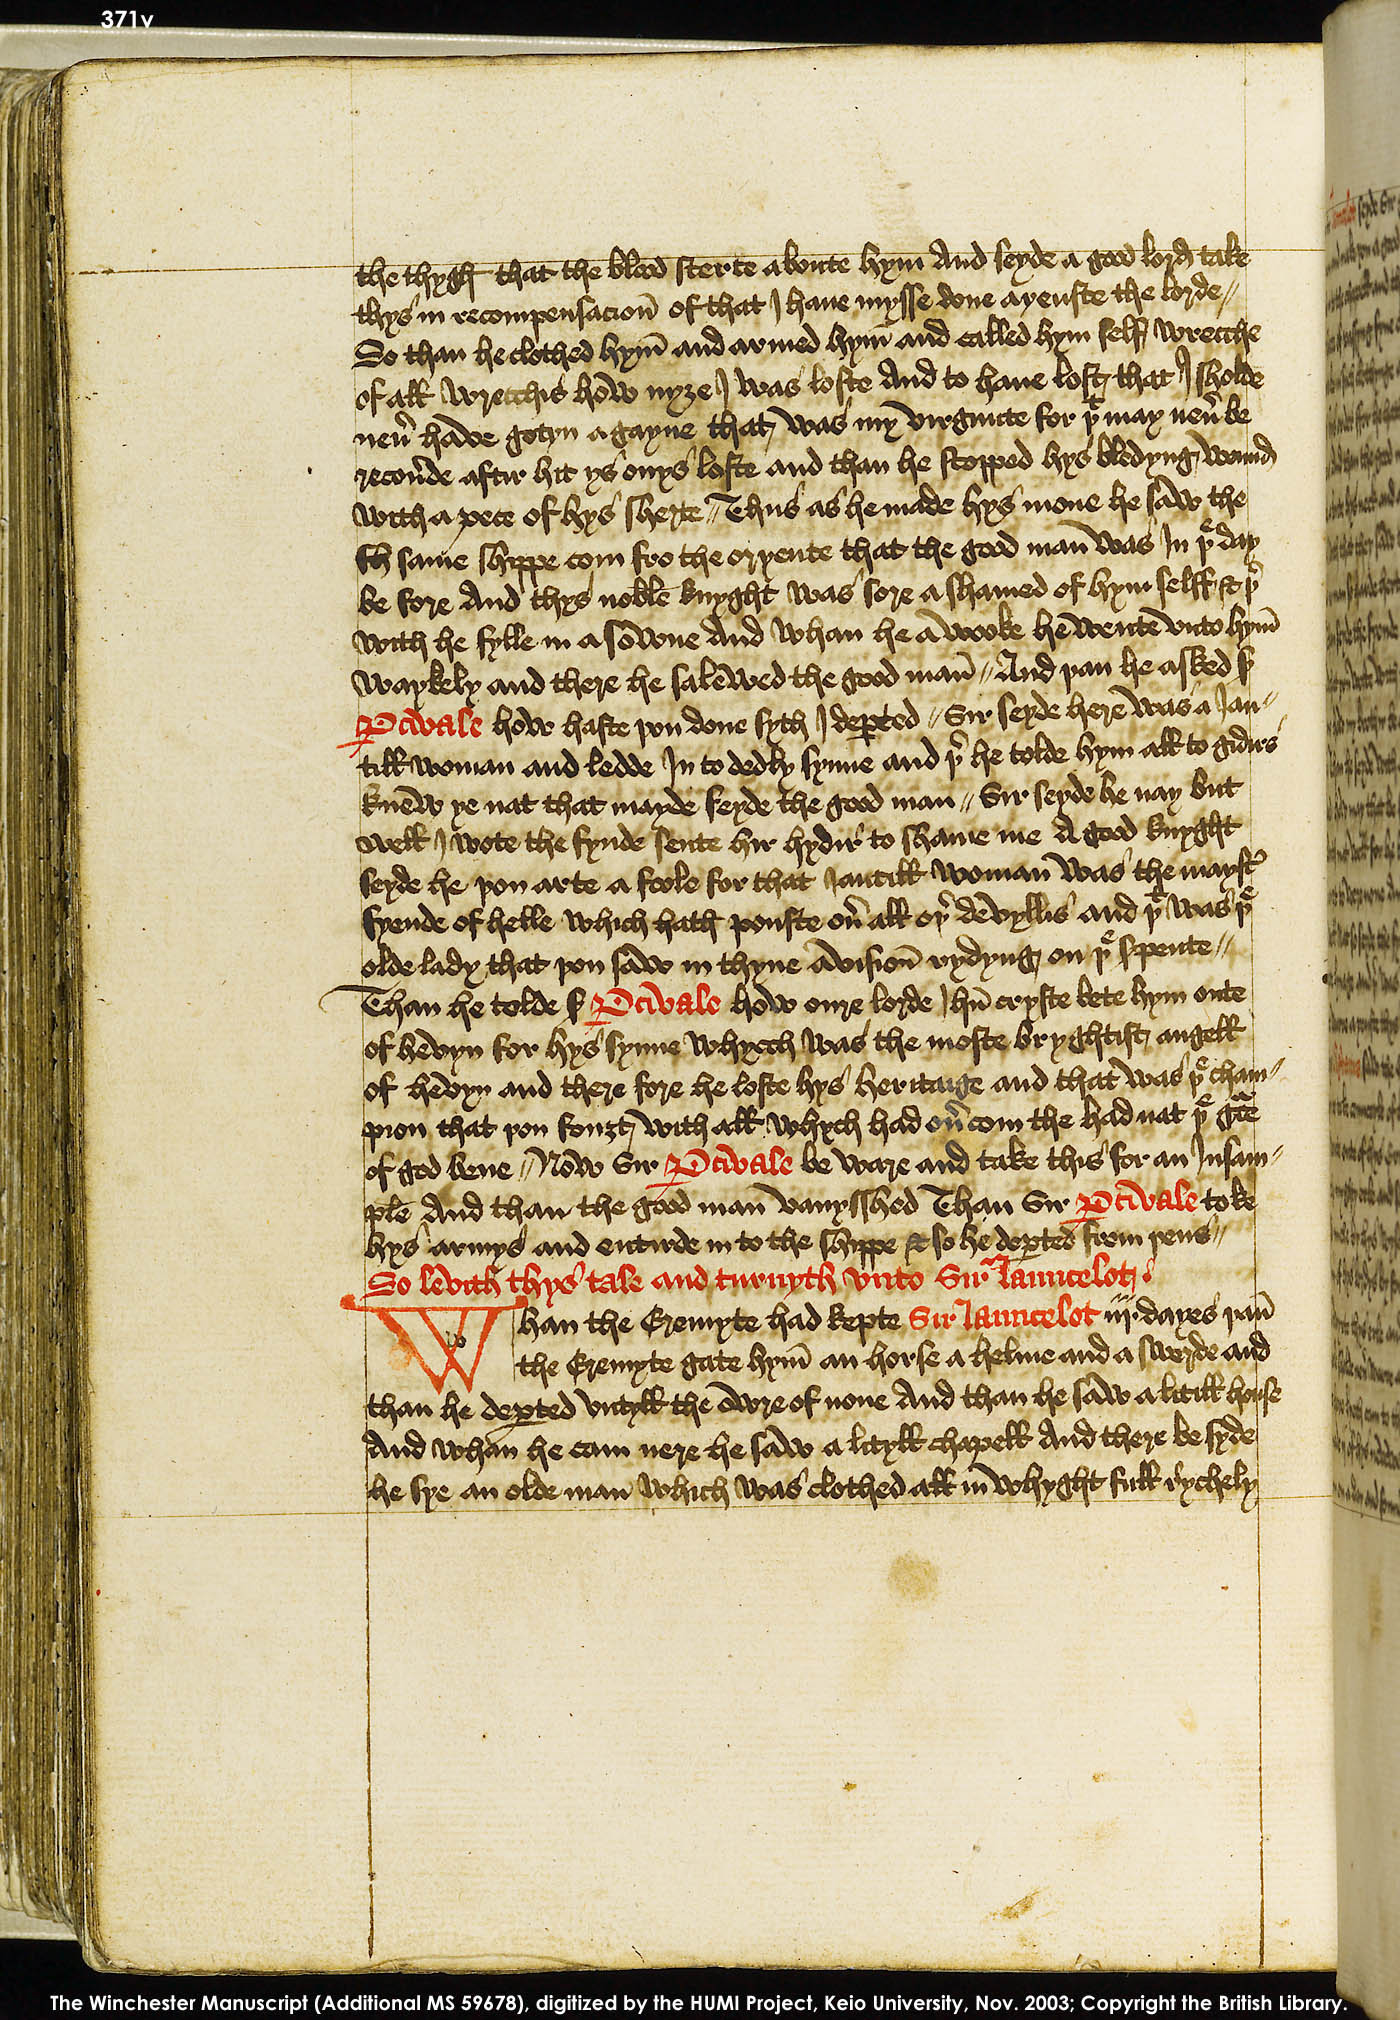 371v
the thygh that the blood sterte aboute hym And seyde a good lord take
thys in recompensacion̄ of that I haue mysse done ayenste the lorde //
So than he clothed hym̄ and armed hym̄ and called hym self wrecche
of all wrecchis how nyȝe I was loste And to haue lost that I sholde
neũ have gotyn a gayne that was my virginite for þᵗ may neũ be
recoũde aftir hit ys onys loste and than he stopped hys bledyng wound
with a pece of hys sherte // Thus as he made hys mone he saw the
sh same shippe com fro the oryente that the good man was In þᵉ day
be fore And thys noble knyght was sore a shamed of hym selff & þʳ
with he fylle in a sowne And whan he a wooke he wente vnto hym̄
waykely and there he salewed the good man̄ // And þan he asked sʳ
Pcivale how haste þou done syth I depted // Sir seyde here was a Jan //
till woman and ledde In to dedly synne and þʳ he tolde hym all to gidirs
knew ye nat that mayde seyde the good man // Sir seyde he nay but
well I wote the fynde sente hir hydir to shame me A good knyght
seyde he þou arte a foole for that Jantill woman was the mayst̉
fyende of helle which hath pouste oũ all oþʳ devyllis and þᵗ was þᵉ
olde lady that þou saw in thyne avision̄ rydyng on þᵉ s̱pente //
Than he tolde sʳ Pcivale how oure lorde Jhū cryste bete hym oute
of hevyn for hys synne whycch was the moste bryghtist angell
of hevyn and there fore he loste hys heritaige and that was þᵉ cham //
pion that þou fouȝt with all whych had oũ com the had nat þᵉ gc̄e
of god bene // Now Sir Pcivale be ware and take this for an Insam //
ple And than the good man̄ vanysshed Than Sir Pcivale toke
hys armys and entirde in to the shippe & so he depted from þens //
So levith thys tale and turnyth vnto Sir Launcelot
Whan the Eremyte had kepte Sir Launcelot iij dayes þan̄
the Eremyte gate hym̄ an horse a helme and a swerde and
than he depted vntyll the owre of none And than he saw a litill house
And whan he cam nere he saw a lityll chapell And there be syde
he sye an olde man which was clothed all in whyght full rychely
The Winchester Manuscript (Additional MS 59678), digitized by the HUMI Project, Keio University, Nov. 2003; Copyright the British Library.